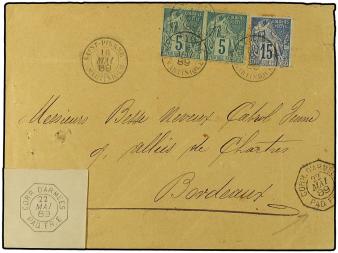 SAINT-PIERRE 18 MAI 89 MARTINIQUE
5 5 15
89
MARTINIQUE
Messieurs Besse Neveux Cabrol Jeune
9, allées de Chartres
Bordeaux
CORR. D'ARMÉES 22 MAI 89 PAQ. FR.
CORR. D'ARMÉES 22 MAI 89 PAQ. FR.